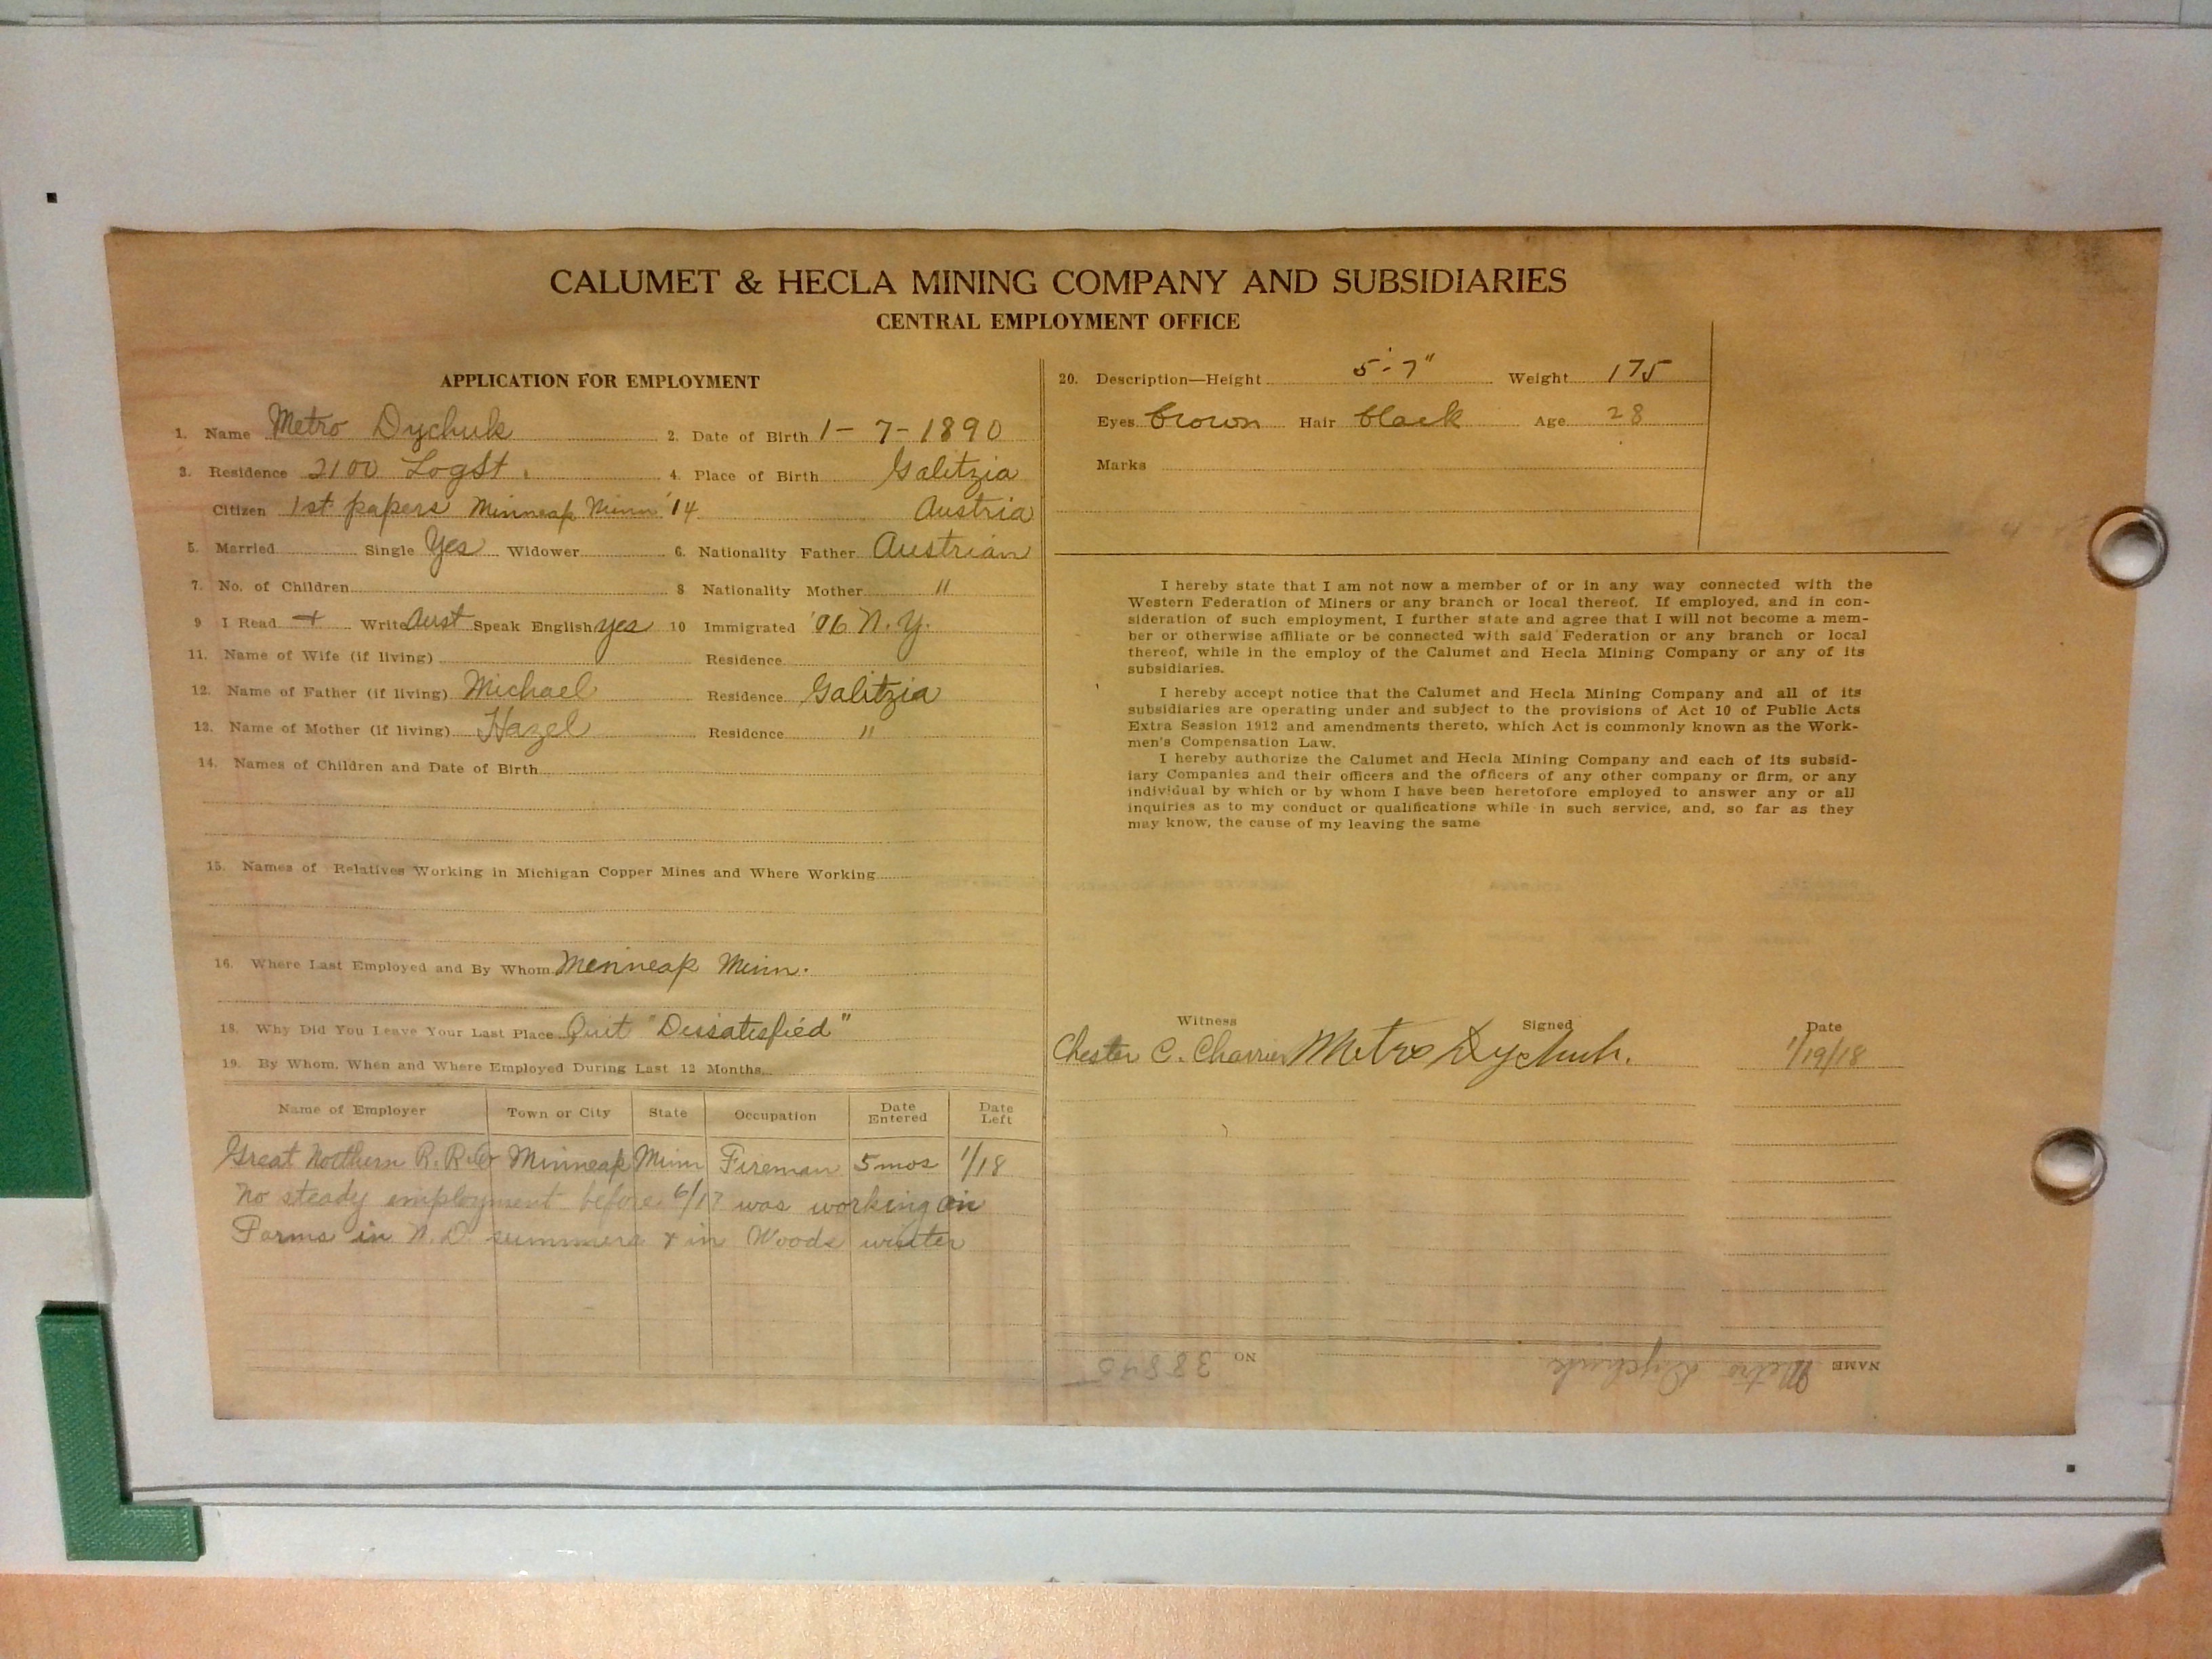 CALUMET & HECLA MINING COMPANY AND SUBSIDIARIES
CENTRAL EMPLOYMENT OFFICE
APPLICATION FOR EMPLOYMENT
1. Name Metro Dychuk 2. Date of Birth 1-7-1890
3. Residence 2100 Log St. 4. Place of Birth Galitzia
Citizen 1st papers Minneap Minn '14 Austria
5. Married Single Yes Widower 6. Nationality Father Austrian
7. No. of Children 8 Nationality Mother "
9 I Read + Write Aust Speak English yes 10 Immigrated '06 N.Y.
11. Name of Wife (if living) Residence
12. Name of Father (if living) Michael Residence Galitzia
13. Name of Mother (if living) Hazel Residence "
14. Names of Children and Date of Birth
15. Names of Relatives Working in Michigan Copper Mines and Where Working
16. Where Last Employed and By Whom Minneap Minn.
18. Why Did You Leave Your Last Place Quit "Dissatisfied"
19. By Whom, When and Where Employed During Last 12 Months
Name of Employer Town or City State Occupation Date Entered Date Left
Great Northern R.R. Co Minneap Minn Fireman 5 mos 1/18
No steady employment before 6/17 was working on
Farms in N.D. summers & in Woods winter
20. Description—Height 5'-7" Weight 175
Eyes brown Hair black Age 28
Marks
I hereby state that I am not now a member of or in any way connected with the
Western Federation of Miners or any branch or local thereof. If employed, and in con-
sideration of such employment, I further state and agree that I will not become a mem-
ber or otherwise affiliate or be connected with said Federation or any branch or local
thereof, while in the employ of the Calumet and Hecla Mining Company or any of its
subsidiaries.
I hereby accept notice that the Calumet and Hecla Mining Company and all of its
subsidiaries are operating under and subject to the provisions of Act 10 of Public Acts
Extra Session 1912 and amendments thereto, which Act is commonly known as the Work-
men's Compensation Law.
I hereby authorize the Calumet and Hecla Mining Company and each of its subsid-
iary Companies and their officers and the officers of any other company or firm, or any
individual by which or by whom I have been heretofore employed to answer any or all
inquiries as to my conduct or qualifications while in such service, and, so far as they
may know, the cause of my leaving the same
Witness Signed Date
Chester C. Charrier Metro Dychuk. 1/19/18
NAME Metro Dychuk NO 38845